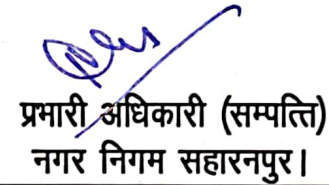 प्रभारी अधिकारी (सम्पत्ति)
नगर निगम सहारनपुर।